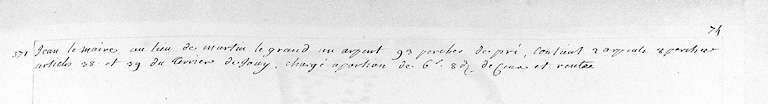 74
371 Jean le maire au lieu de martin le grand un arpent 93 perches de pré, contient 2 arpents 2 perches
articles 38 et 39 du terrier de Joüy, chargé a portion de 6s 8d de Cens et rentes